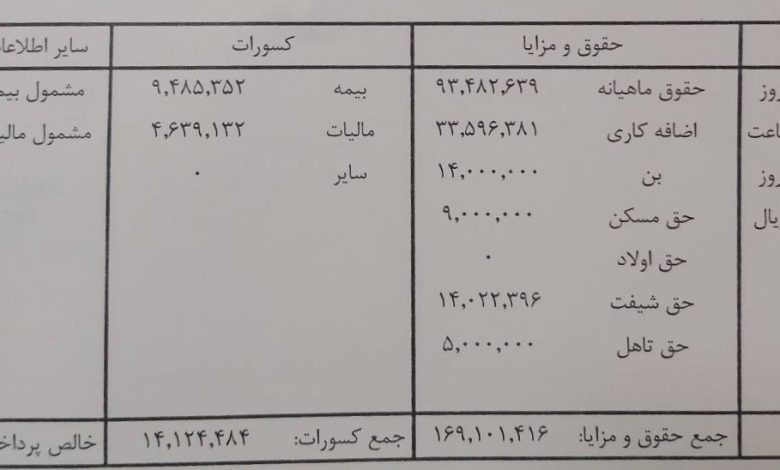 حقوق و مزایا کسورات سایر
روز حقوق ماهیانه ۹۳,۴۸۲,۶۳۹ بیمه ۹,۴۸۵,۳۵۲ مشمول
اضافه کاری ۳۳,۵۹۶,۳۸۱ مالیات ۴,۶۳۹,۱۳۲ مشمول
روز بن ۱۴,۰۰۰,۰۰۰ سایر ۰
حق مسکن ۹,۰۰۰,۰۰۰
حق اولاد ۰
حق شیفت ۱۴,۰۲۲,۳۹۶
حق تاهل ۵,۰۰۰,۰۰۰
جمع حقوق و مزایا: ۱۶۹,۱۰۱,۴۱۶ جمع کسورات: ۱۴,۱۲۴,۴۸۴ خالص